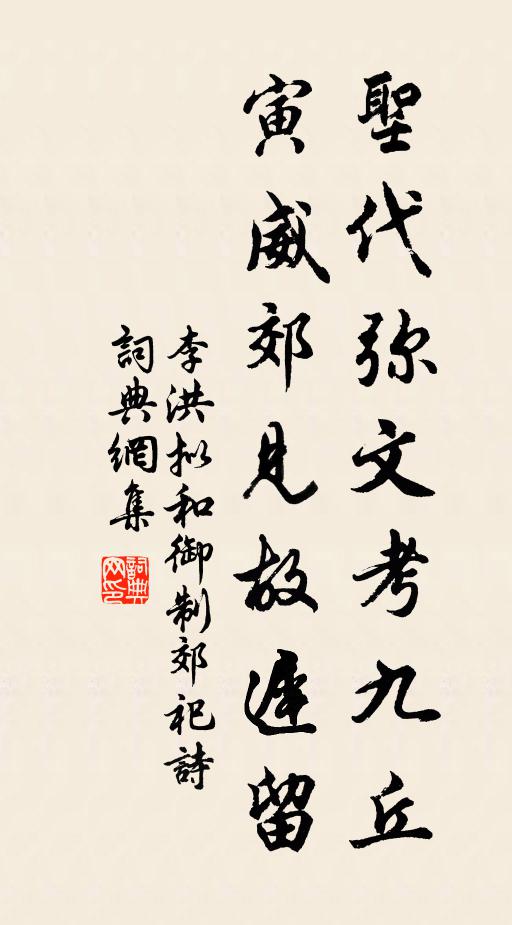 聖代弥文考九丘
寅威郊見故遲留
李洪拟和御制郊祀詩
詞典網集
詞典网印